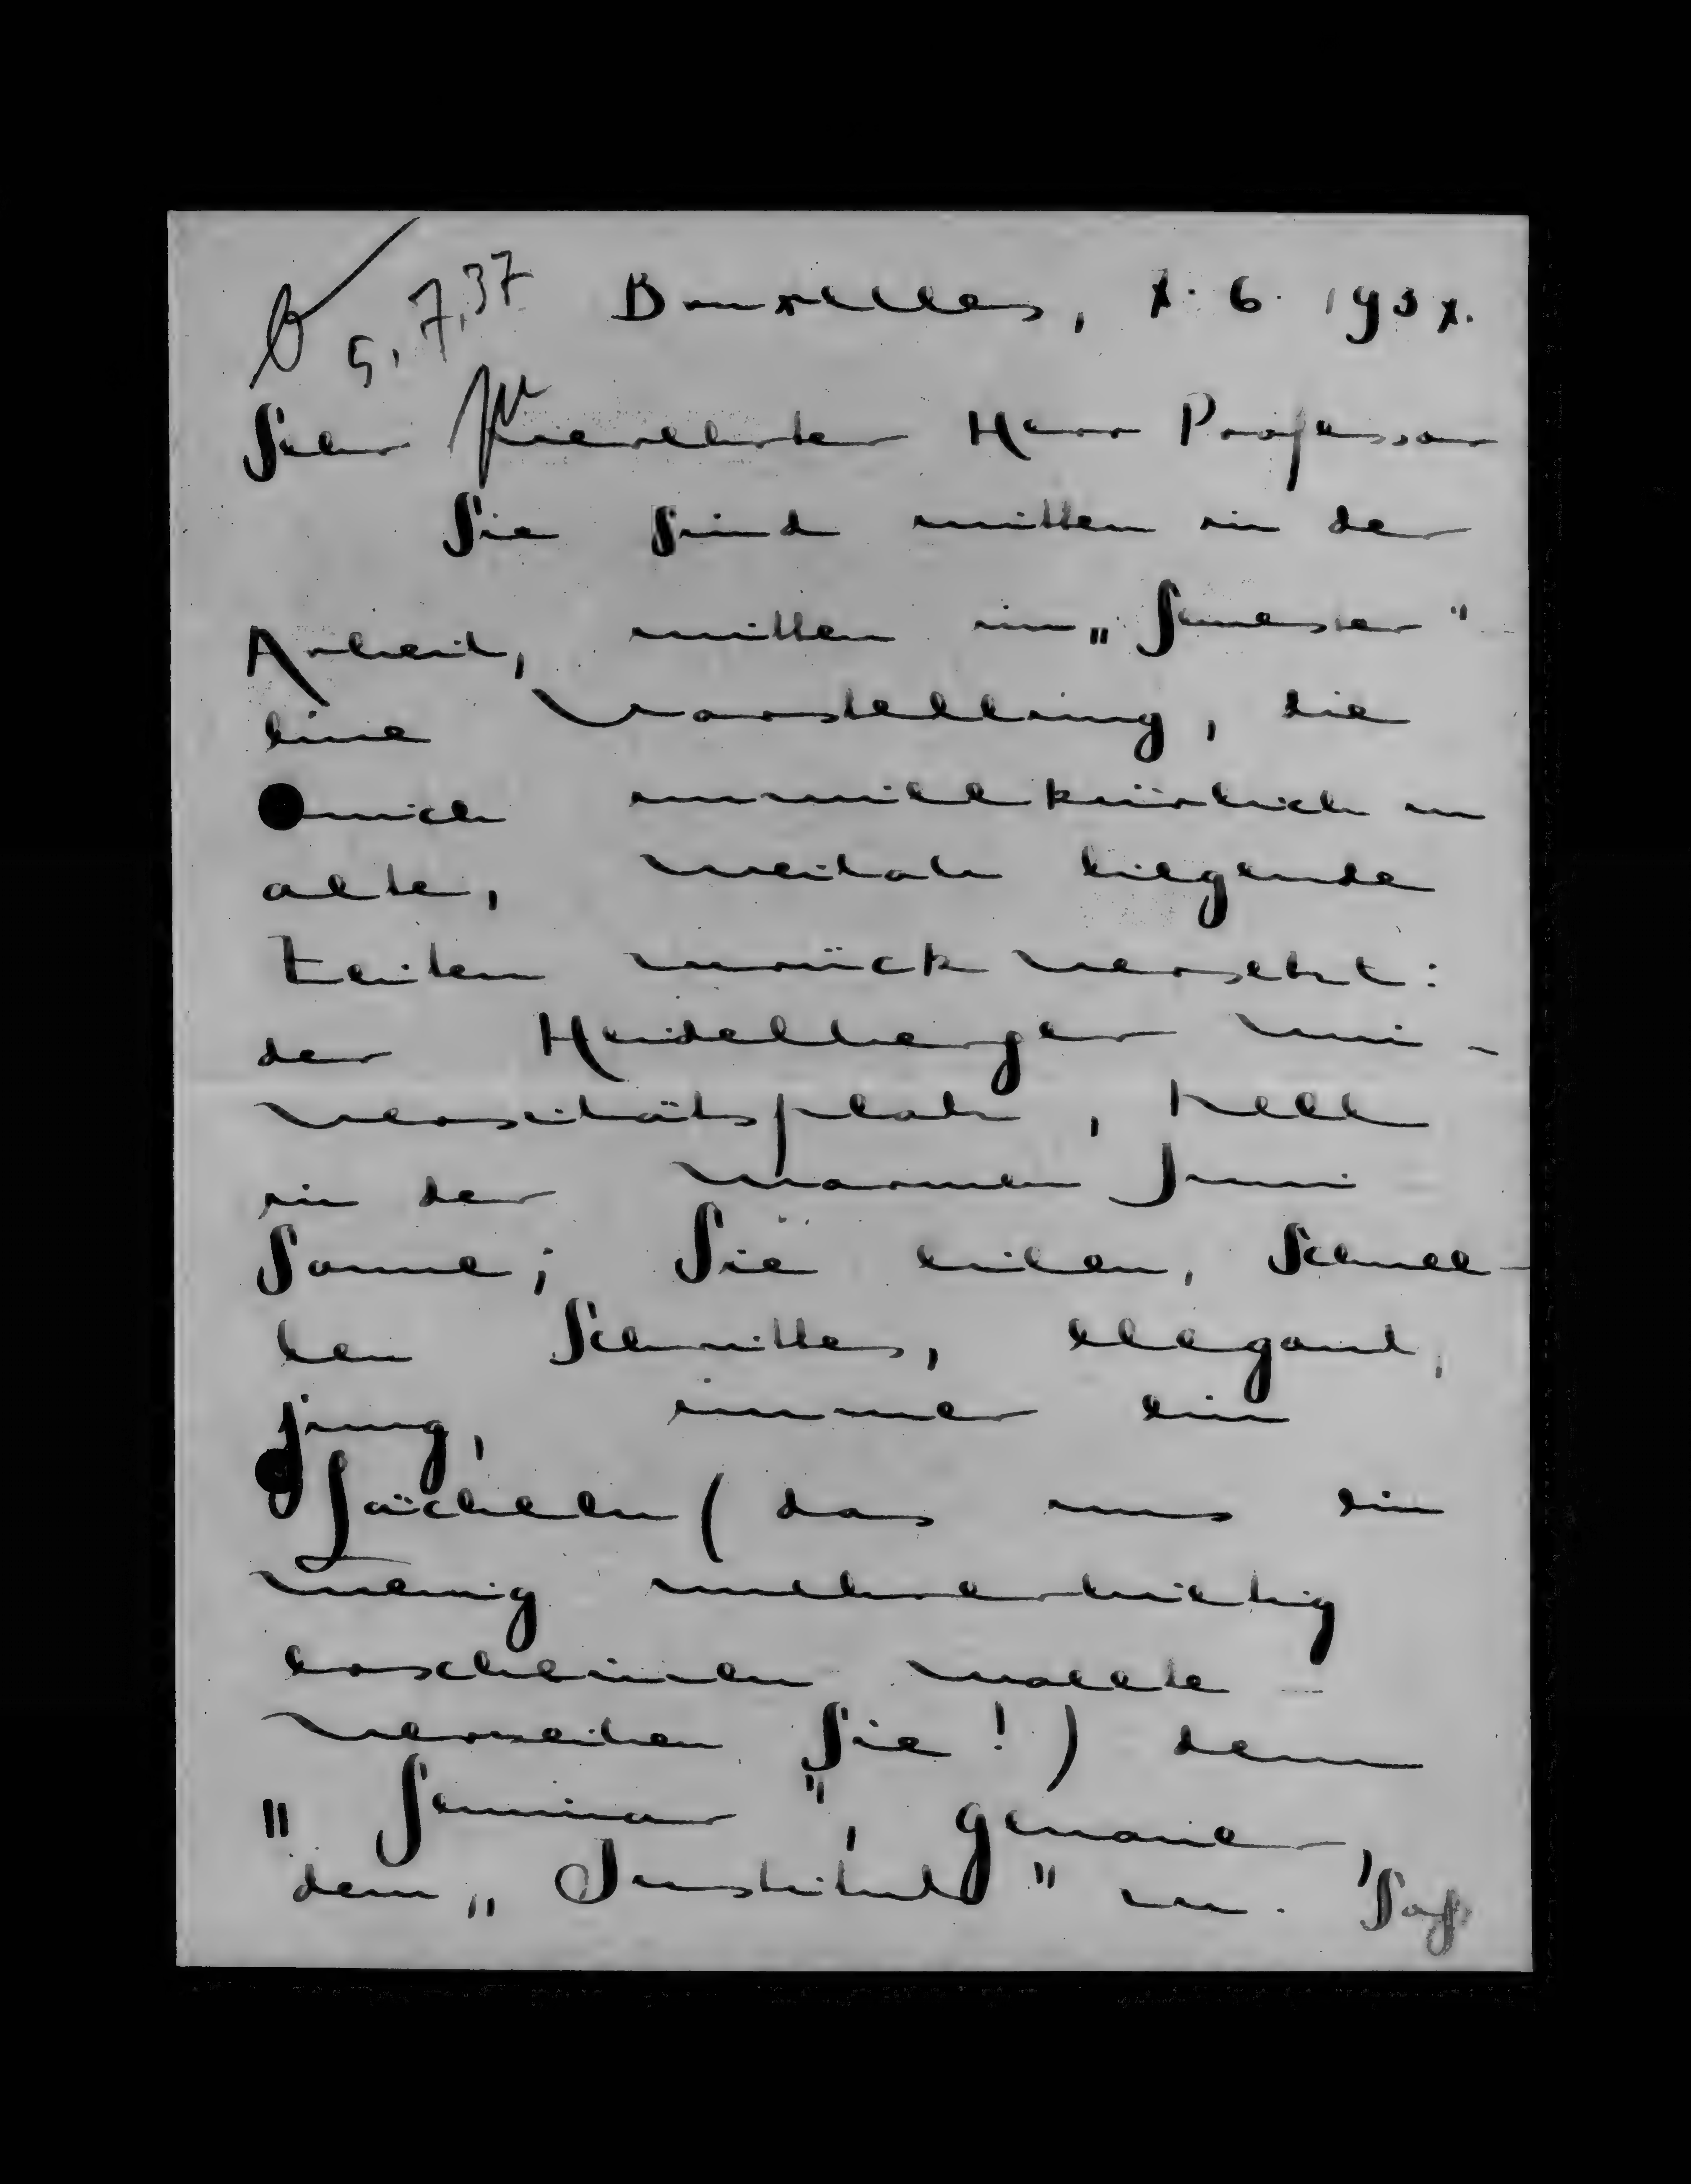 5.7.37 Bruxelles, 7.6.1937.
Sehr verehrter Herr Professor
Sie sind mitten in der
Arbeit, mitten im „Semester"
eine Vorstellung, die
mich unwillkürlich in
alte, weitab liegende
Zeiten zurückversetzt:
der Heidelberger Uni-
versitätsplatz, hell
in der warmen Juni
Sonne; Sie eilen, schnel-
len Schrittes, elegant,
jung, immer ein
Lächeln (das uns ein
wenig mehrdeutig
erscheinen wollte –
verzeihen Sie!) dem
„Seminar", genauer,
dem „Institut" zu.